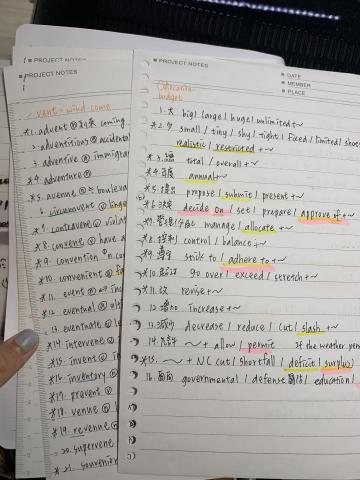 PROJECT NOTES
PROJECT NOTES
vent = wind come
*1. advent ⓝ 到來 coming
2. adventitious ⓐ accidental
3. adventive ⓐ immigra
*4. adventure ⓝ
*5. avenue ⓝ = bouleva
6. circumvent ⓥ
*7. contravene ⓥ viola
*8. convene ⓥ have a
*9. convention ⓝ con
*10. convenient ⓐ
*11. event ⓝ
*12. eventual ⓐ
13. eventuate ⓥ
*14. intervene ⓥ
*15. invent ⓥ
*16. inventory ⓝ
*17. prevent ⓥ
*18. venue ⓝ
*19. revenue ⓝ
*20. supervene
*21. souvenir
PROJECT NOTES
DATE
MEMBER
PLACE
budget
1. 大 big/large/huge/unlimited +~
*2. 小 small/tiny/shy/tight/fixed/limited/shoes
realistic/restricted +~
*3. 總 total/overall +~
*4. 年度 annual +~
*5. 提出 propose/submit/present +~
*6. 決定 decide on/set/prepare/approve of +~
*7. manage/allocate +~
*8. 控制 control/balance +~
*9. 遵守 stick to/adhere to +~
*10. 超过 go over/exceed/stretch +~
*11. 改 revise +~
12. 增加 increase +~
*13. 減少 decrease/reduce/cut/slash +~
14. 允許 ~ + allow/permit If the weather per
*15. ~ + N cut/shortfall/deficit/surplus
16. 方面 governmental/defense 國防/education/